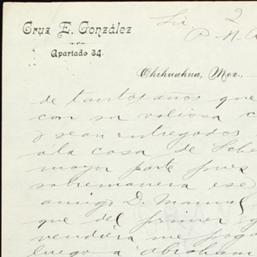 Sr. 2
Cruz E. González
P. M. A
Apartado 34.
Chihuahua, Mex.
de tantos años que
con su valiosa c
y sean entregados
a la casa de
mayor parte pues
sobremanera ese
amigo D. Manuel
que del primer
vendiera me pag
luego a Abraham